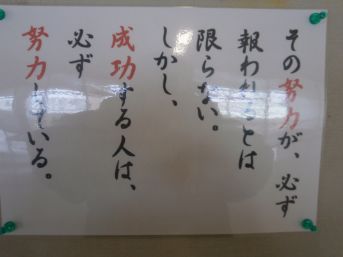 その努力が、必ず
報われるとは
限らない。
しかし、
成功する人は、
必ず
努力している。